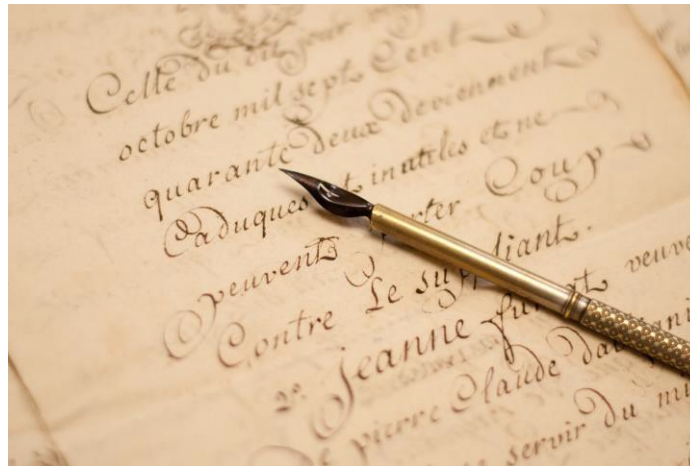 Celle du dit jour
octobre mil sept Cent
quarante deux deviennent
Caduques et inutiles et ne
peuvent porter Coup
Contre Le supliant.
2o. Jeanne furet veuve
pierre Claude
servir du